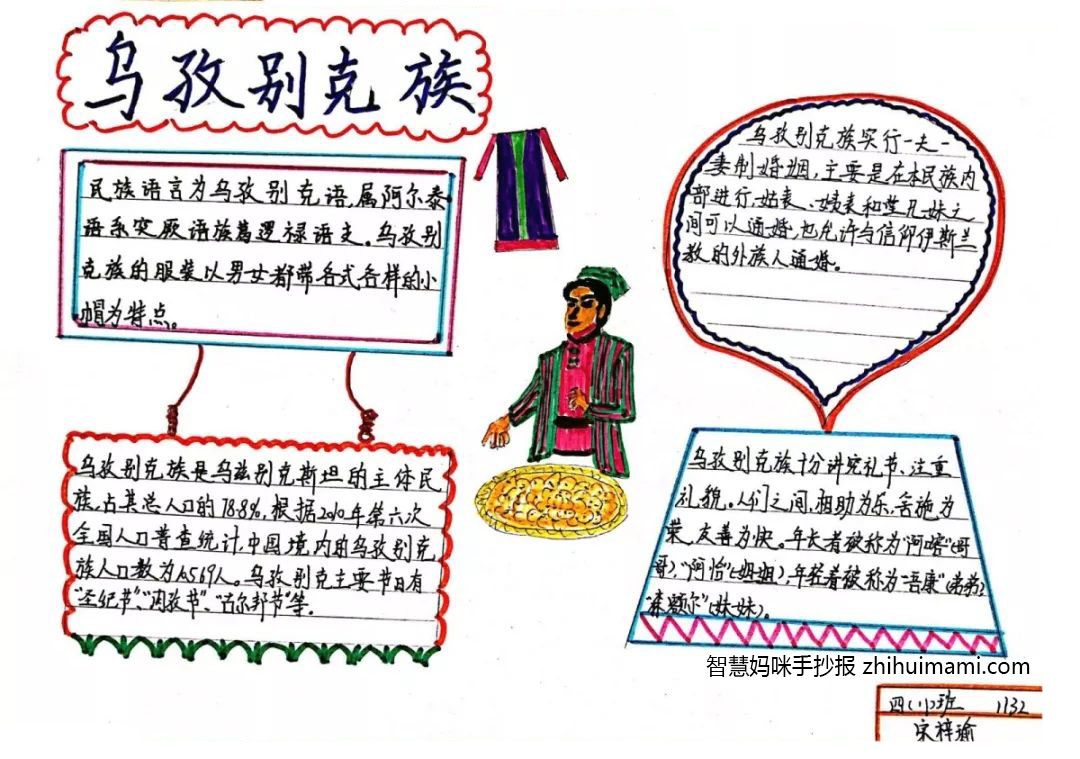 乌孜别克族
民族语言为乌孜别克语,属阿尔泰
语系突厥语族葛逻禄语支。乌孜别
克族的服装以男女都带各式各样的小
帽为特点。
乌孜别克族是乌兹别克斯坦的主体民
族,占其总人口的78.8%,根据2010年第六次
全国人口普查统计,中国境内的乌孜别克
族人口数为10569人。乌孜别克主要节日有
“圣纪节”、“肉孜节”、“古尔邦节”等。
乌孜别克族实行一夫一
妻制婚姻,主要是在本民族内
部进行,姑表、姨表和堂兄妹之
间可以通婚,也允许与信仰伊斯兰
教的外族人通婚。
乌孜别克族十分讲究礼节、注重
礼貌。人们之间,相助为乐,舍施为
荣,友善为快。年长者被称为“阿喀”(哥
哥)、“阿恰”(姐姐),年轻者被称为“吾康”(弟弟)、
“森额尔”(妹妹)。
智慧妈咪手抄报 zhihuimami.com
四(1)班 1132
宋梓瑜